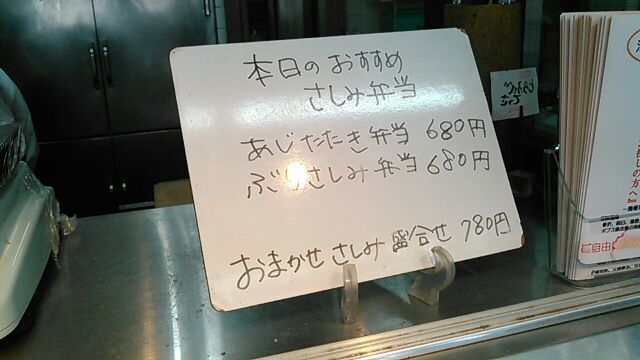 本日のおすすめ
さしみ弁当
あじたたき弁当 680円
ぶりさしみ弁当 680円
おまかせ さしみ 盛合せ 780円
の方へ
ご自由